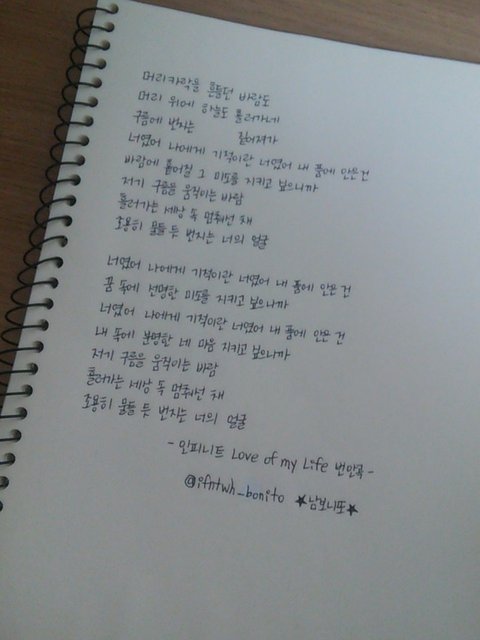 머리카락을 흔들던 바람도
머리 위에 하늘도 흘러가네
구름에 번지는 짙어져가
너였어 나에게 기적이란 너였어 내 품에 안은 건
바람에 흩어질 그 미소를 지키고 싶으니까
저기 구름을 움직이는 바람
흘러가는 세상 속 멈춰선 채
조용히 물들 듯 번지는 너의 얼굴
너였어 나에게 기적이란 너였어 내 품에 안은 건
꿈 속에 선명한 미소를 지키고 싶으니까
너였어 나에게 기적이란 너였어 내 품에 안은 건
내 속에 분명할 네 마음 지키고 싶으니까
저기 구름을 움직이는 바람
흘러가는 세상 속 멈춰선 채
조용히 물들 듯 번지는 너의 얼굴
- 인피니트 Love of my Life 번안곡 -
@ifntwh_bonito ★남보니또★